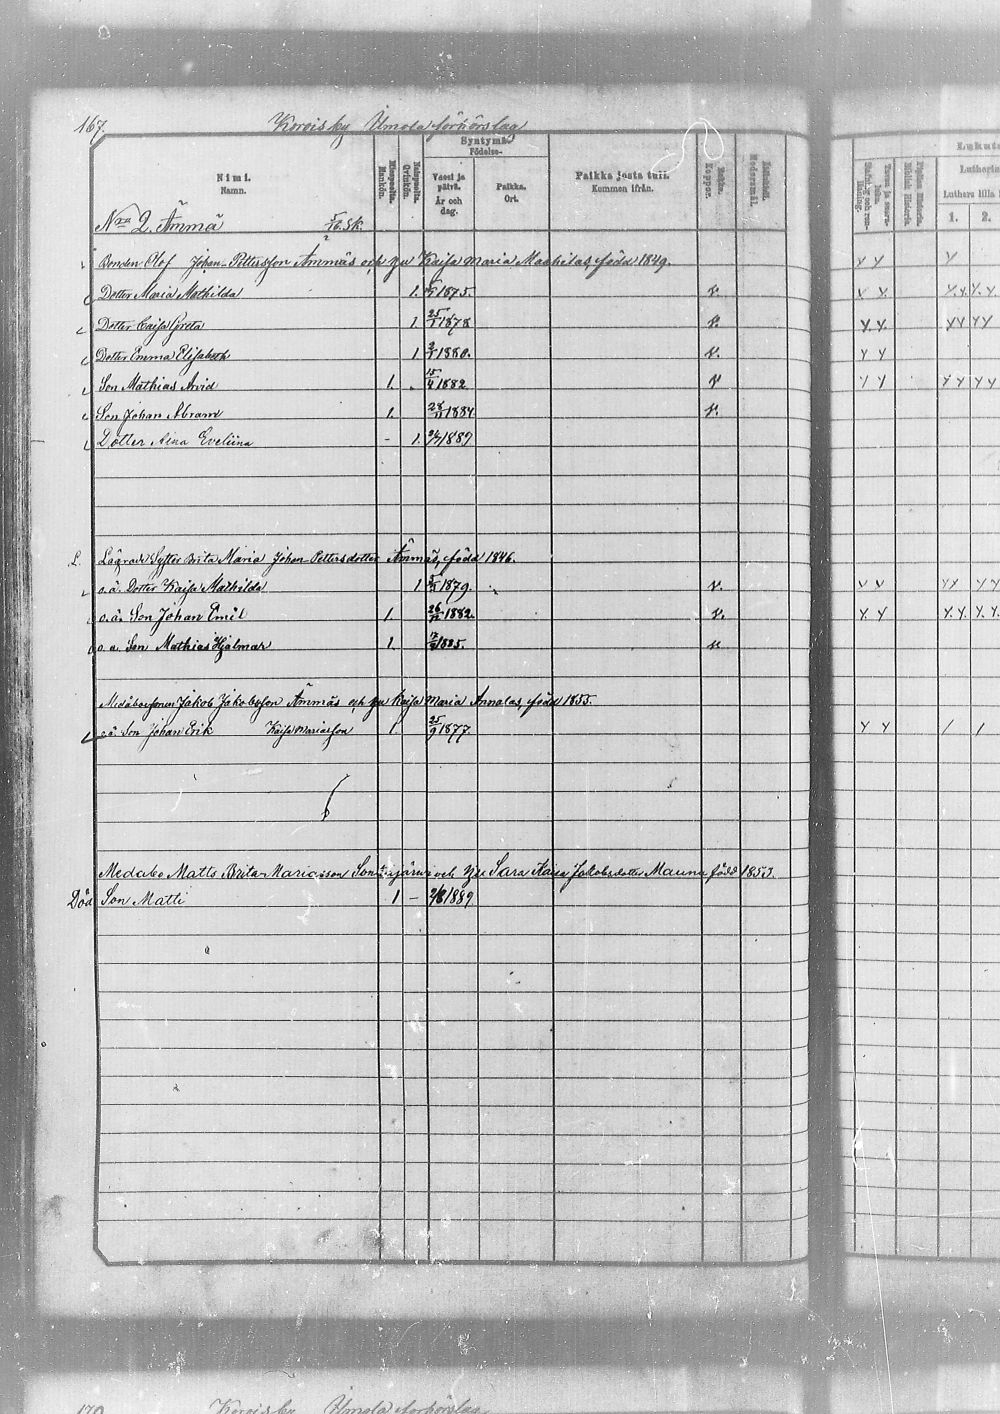 167. Korvisby Ümola förhörslag
Nimi. Namn.
Miespuolia. Mankön.
Naispuolia. Qvinkön.
Syntymä- Födelse-
Vuosi ja päivä. År och dag.
Paikka. Ort.
Paikka josta tuli. Kommen ifrån.
Rokko. Koppor.
Modersmål.
Lukuta
Luthers lilla
1. 2.
N:ro 2. Ämmä 5/16. Sk.
Bonden Olof Johan-Pettersson Ämmäs och hu Kaisa Maria Mathilas, född 1849.
Dotter Maria Mathilda 1. 1875. v.
Dotter Caisa Greta 1. 25/1 1878 v.
Dotter Emma Elisabeth 1 2/1 1880. v.
Son Mathias Arvid 1. 15/4 1882 v
Son Johan Abram 1. 28/11 1884 v.
Dotter Aina Eveliina - 1. 1889
L. Lägrade Syster Brita Maria Johan-Pettersdotter Ämmäs, född 1846.
o.ä. Dotter Kaisa Mathilda 1 1879. v.
o.ä. Son Johan Emil 1. 26/12 1882. v.
o.ä. Son Mathias Hjalmar 1. 1885. v
Medåboersonen Jakob Jakobsson Ämmäs och hu Kaisa Maria Annalas, född 1855.
o.ä. Son Johan Erik Kaisa Mariasson 1. 25/9 1877.
Medåbo Matts Brita-Mariasson Sontajärvi och hu Sara Kaisa Jakobsdotter Mauna född 1853.
Död Son Matti 1 - 2/8 1889
170 Korvisby Ümola förhörslag